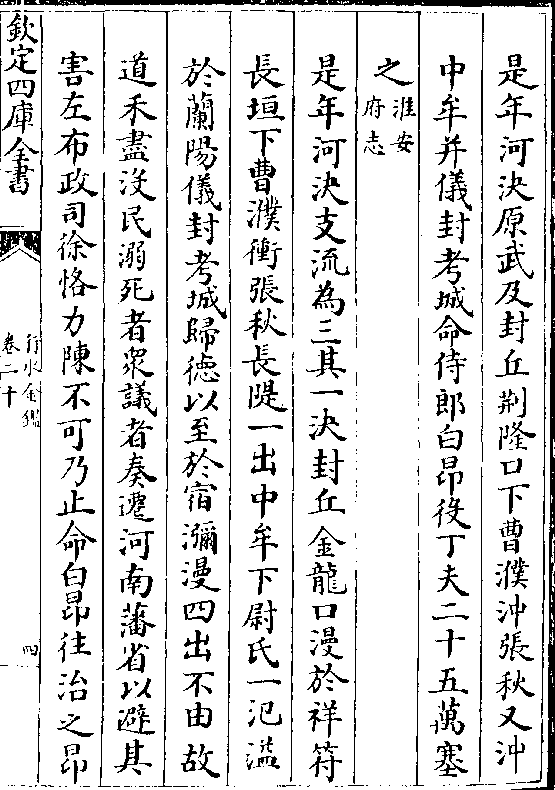 是年河決原武及封丘荆隆口下曹濮沖張秋又沖
中牟并儀封考城命侍郎白昂役丁夫二十五萬塞
之淮安府志
是年河決支流為三其一決封丘金龍口漫於祥符
長垣下曹濮衝張秋長隄一出中牟下尉氏一氾濫
於蘭陽儀封考城歸德以至於宿瀰漫四出不由故
道禾盡沒民溺死者衆議者奏遷河南藩省以避其
害左布政司徐恪力陳不可乃止命白昂往治之昂
欽定四庫全書
行水金鑑
卷二十
四